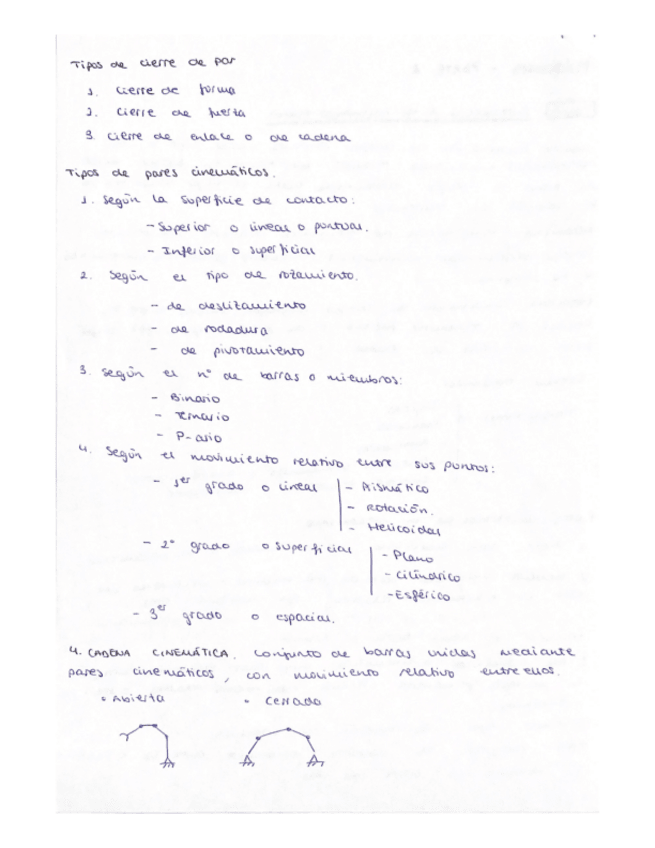 Tipos de cierre de par
1. Cierre de forma
2. Cierre de fuerza
3. Cierre de enlace o de cadena
Tipos de pares cinemáticos.
1. Según la superficie de contacto:
- Superior o lineal o puntual.
- Inferior o superficial
2. Según el tipo de rozamiento.
- de deslizamiento
- de rodadura
- de pivotamiento
3. Según el nº de barras o miembros:
- Binario
- Ternario
- P-ario
4. Según el movimiento relativo entre sus puntos:
- 1er grado o lineal
- Prismático
- Rotación.
- Helicoidal
- 2º grado o superficial
- Plano
- Cilíndrico
- Esférico
- 3er grado o espacial.
4. CADENA CINEMÁTICA. Conjunto de barras unidas mediante
pares cinemáticos, con movimiento relativo entre ellos.
• Abierta • Cerrada